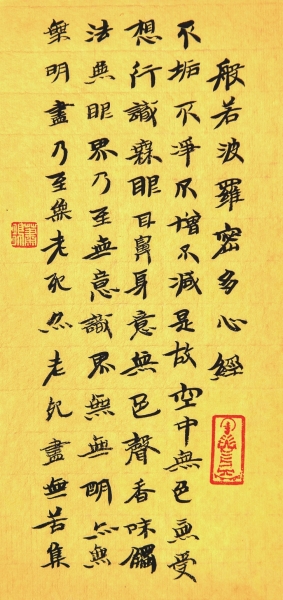 般若波羅密多心經
不垢不淨不增不減是故空中無色無受
想行識無眼耳鼻身意無色聲香味觸
法無眼界乃至無意識界無無明亦無
無明盡乃至無老死亦老死盡無苦集